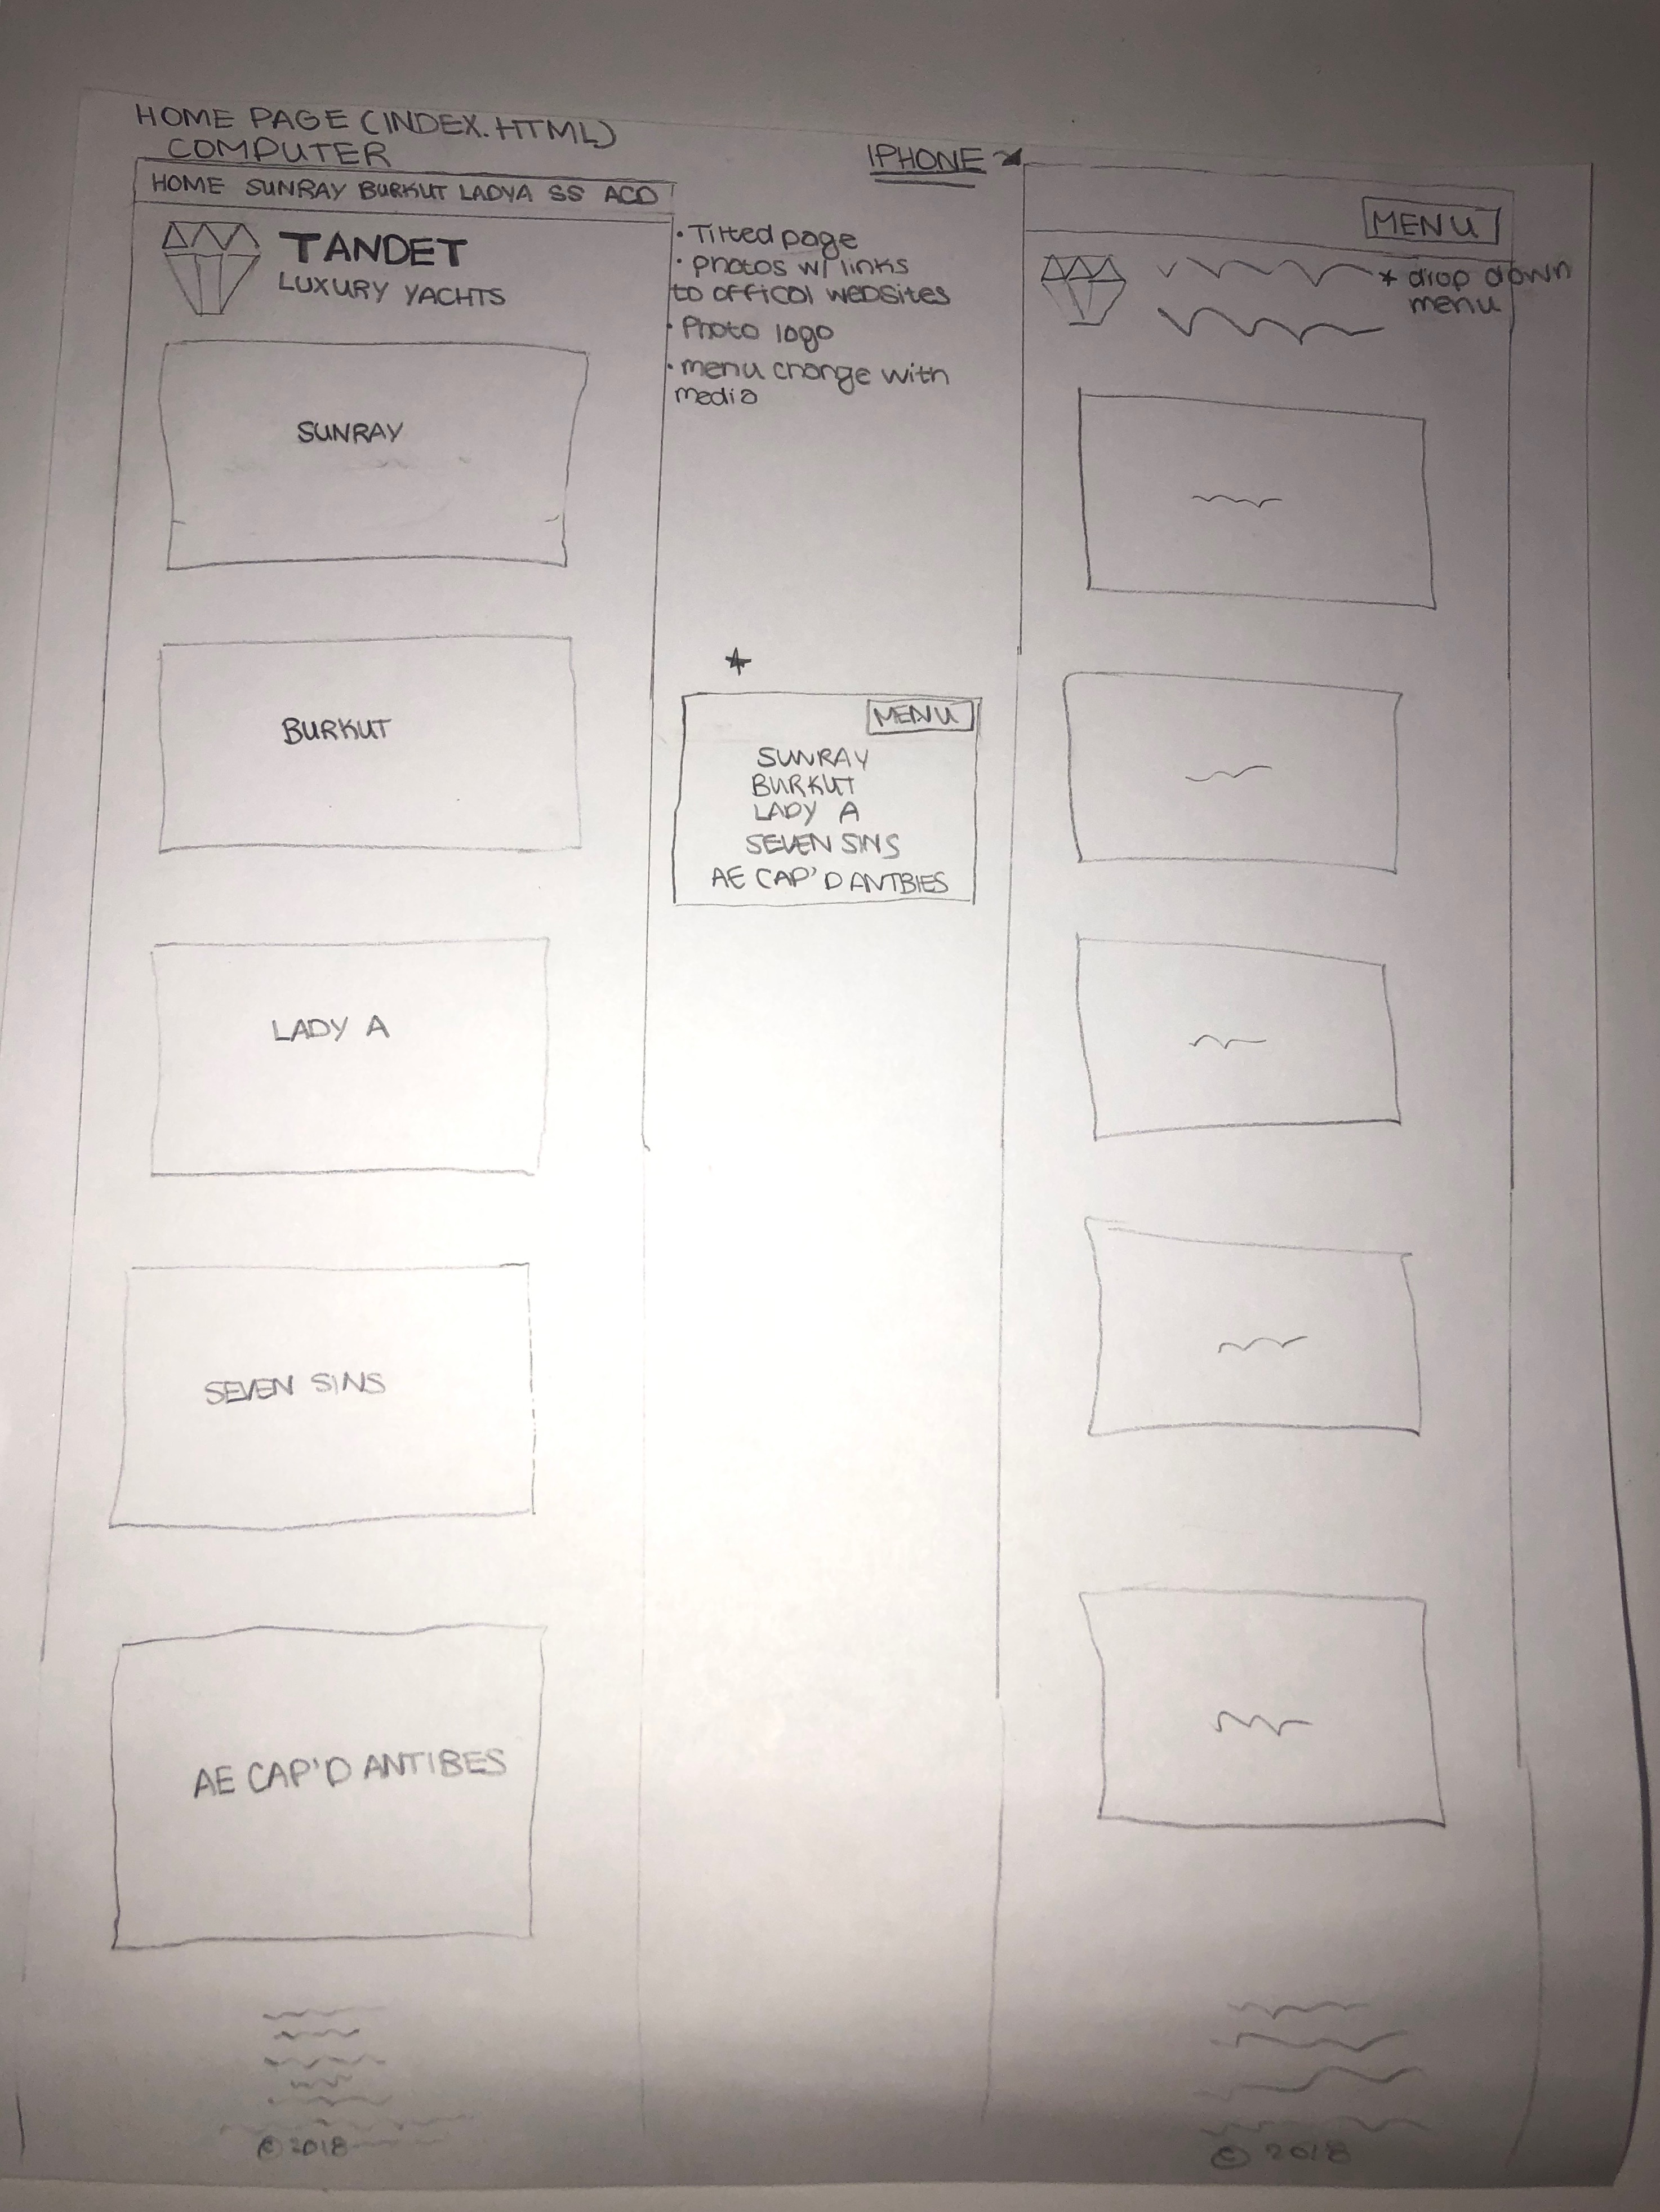 HOME PAGE (INDEX.HTML)
COMPUTER
HOME SUNRAY BURKUT LADYA SS ACD
TANDET
LUXURY YACHTS
SUNRAY
BURKUT
LADY A
SEVEN SINS
AE CAP'D ANTIBES
© 2018
• Tilted page
• photos w/ links
to offical websites
• Photo logo
• menu change with
media
MENU
SUNRAY
BURKUT
LADY A
SEVEN SINS
AE CAP'D ANTBIES
IPHONE
MENU
* drop down
menu
© 2018